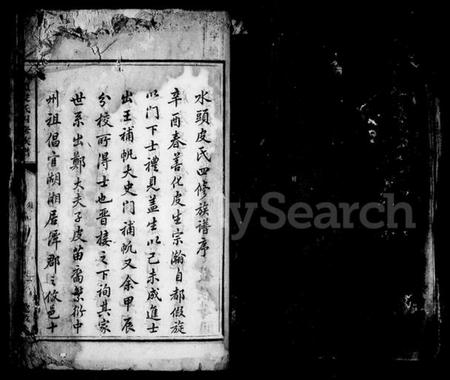 水頭皮氏四修族譜序
辛酉春善化皮生宗瀚自都假旋
以門下士禮見蓋生以己未成進士
出王補帆大史門補帆又余甲辰
分校所得士也晉接之下詢其家
世系出鄭大夫子皮苗裔繁衍中
州祖倡宦湖湘居潭郡之攸邑十
ySearch